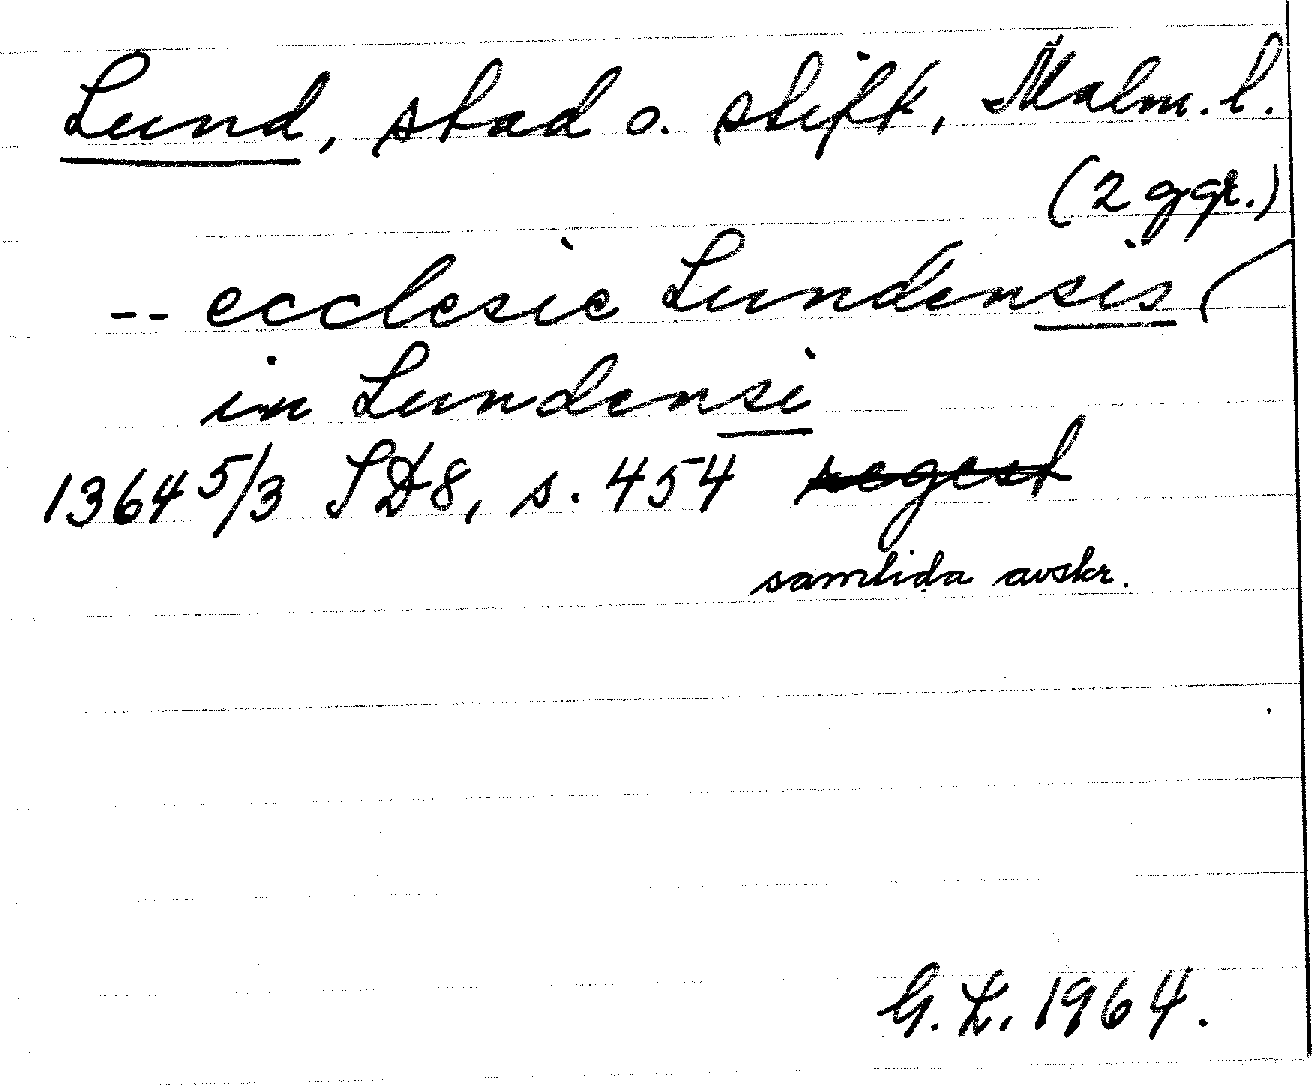 Lund, stad o. stift, Malm. l.
(2 ggr.)
-- ecclesie Lundensis (
in Lundensi
1364 5/3 SD8, s. 454 regest
samtida avskr.
G. L. 1964.